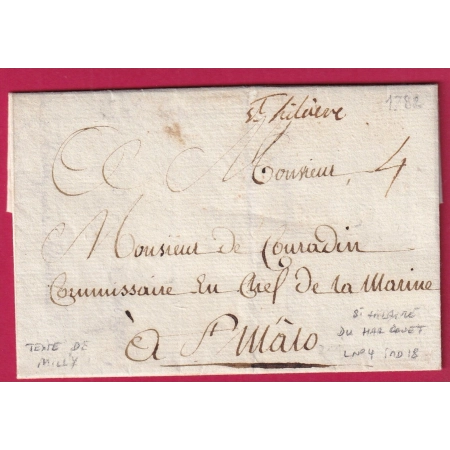 1782
St hilaire
Monsieur 4
Monsieur de Couradin
Commissaire En Chef de la Marine
à St Mâlo
TEXTE DE
MILLY
St HILAIRE
DU HARCOUET
LN°4 IND 18